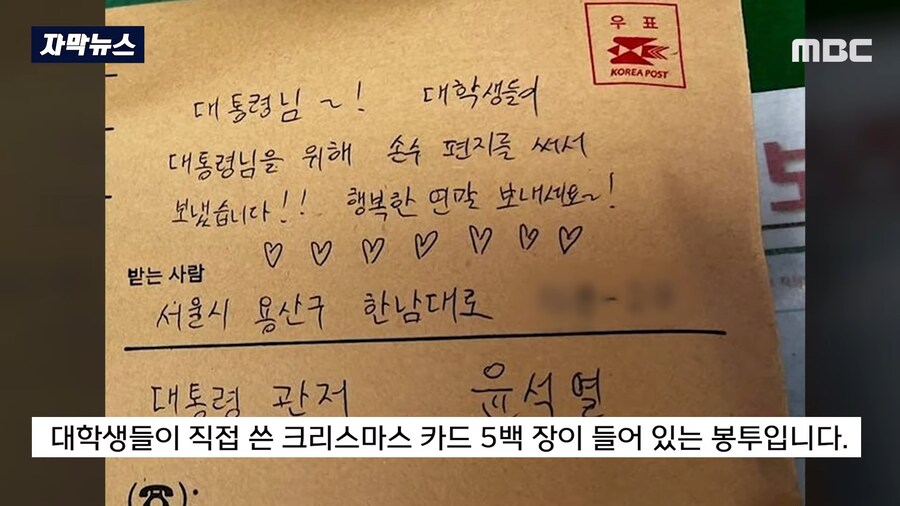 자막뉴스
MBC
우표
KOREA POST
대통령님~! 대학생들이
대통령님을 위해 손수 편지를 써서
보냈습니다!! 행복한 연말 보내세요~!
♡ ♡ ♡ ♡ ♡ ♡ ♡
받는 사람
서울시 용산구 한남대로
대통령 관저 윤석열
대학생들이 직접 쓴 크리스마스 카드 5백 장이 들어 있는 봉투입니다.
(☎):